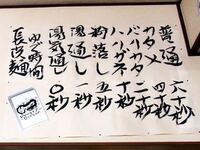 普通 六十秒
カタメ 四十秒
バリカタ 二十秒
ハリガネ 十秒
粉落し 五秒
湯通し 一秒
湯気通し 〇秒
ゆで時間
長浜麺